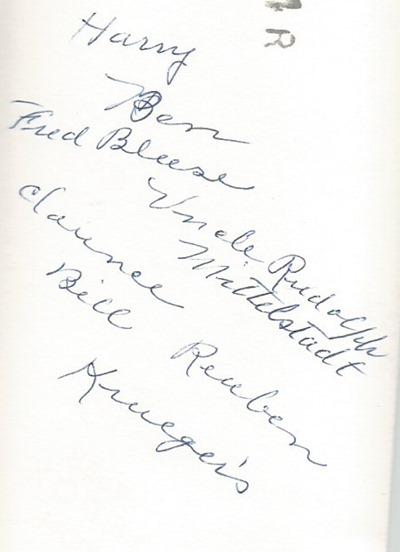 Harry
Ben
Fred Bleese
Uncle Rudolph
Mittelstadt
Clarence
Bill
Reuben
Krueger's
R